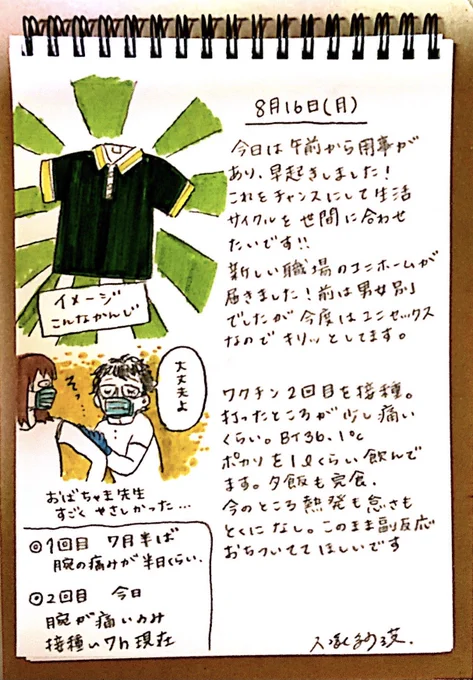 8月16日(月)
今日は午前から用事が
あり、早起きしました!
これをチャンスにして生活
サイクルを世間に合わせ
たいです!!
新しい職場のユニホームが
届きました!前は男女別
でしたが今度はユニセックス
なのでキリッとしてます。
ワクチン2回目を接種。
打ったところが少し痛い
くらい。BT36.1℃
ポカリを1ℓくらい飲んで
ます。夕飯も完食.
今のところ熱発も怠さも
とくになし。このまま副反応
おちついててほしいです
イメージ
こんなかんじ
そっ…
大丈夫よ
おばちゃま先生
すごくやさしかった…
◎1回目 7月半ば
腕の痛みが半日くらい.
◎2回目 今日
腕が痛いのみ
接種い7h現在